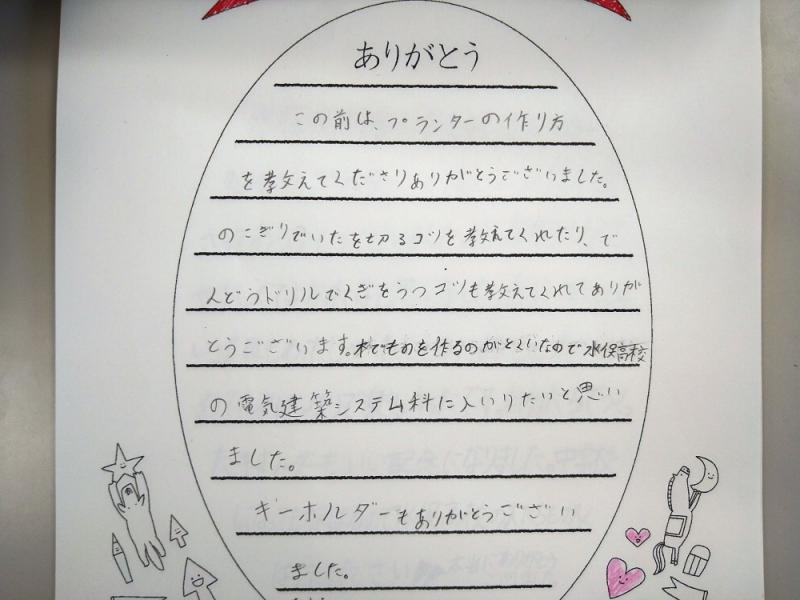 ありがとう
この前は、プランターの作り方
を教えてくださりありがとうございました。
のこぎりでいたを切るコツを教えてくれたり、で
んどうドリルでくぎをうつコツも教えてくれてありが
とうございます。木でものを作るのがとくいなので水俣高校
の電気建築システム科に入いりたいと思い
ました。
キーホルダーもありがとうござい
ました。